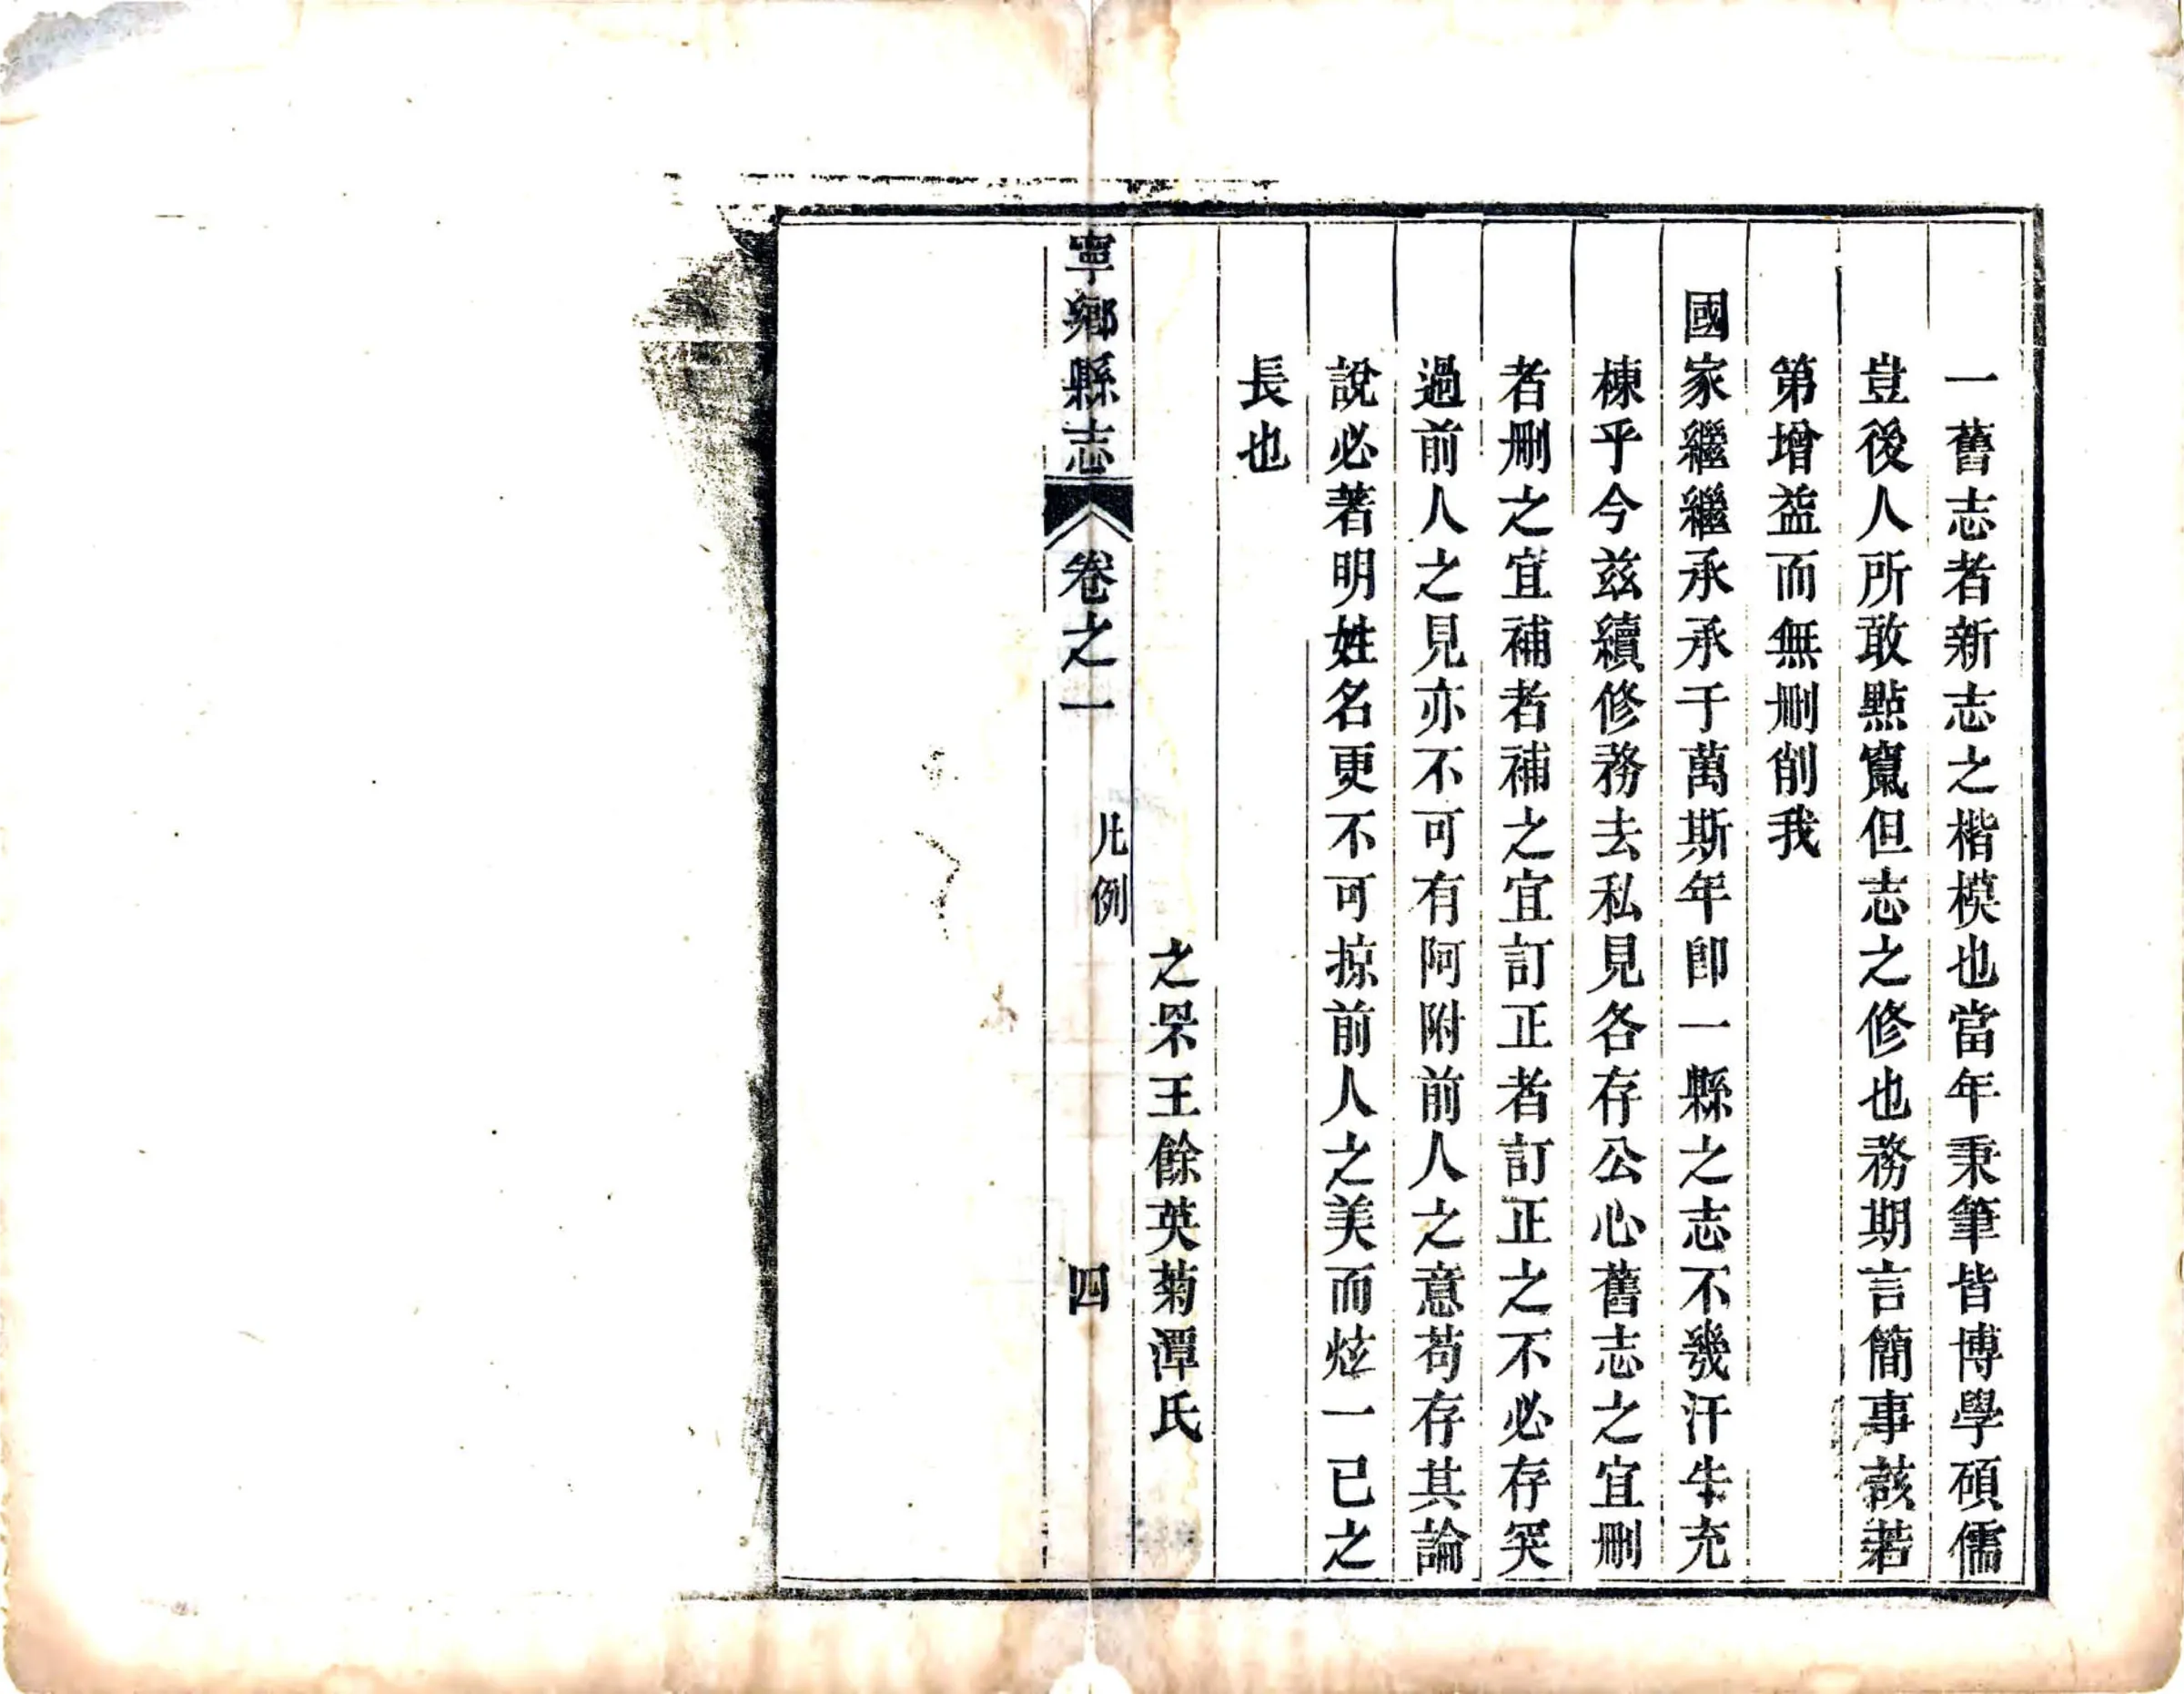 一舊志者新志之楷模也當年秉筆皆博學碩儒
豈後人所敢點竄但志之修也務期言簡事蓛若
第增益而無刪削我
國家繼繼承承于萬斯年卽一縣之志不幾汗牛充
棟乎今兹續修務去私見各存公心舊志之宜刪
者刪之宜補者補之宜訂正者訂正之不必存突
過前人之見亦不可有阿附前人之意苟存其論
說必著明姓名更不可掠前人之美而炫一已之
長也
之杲王餘英菊潭氏
寧鄉縣志 卷之一 凡例 四